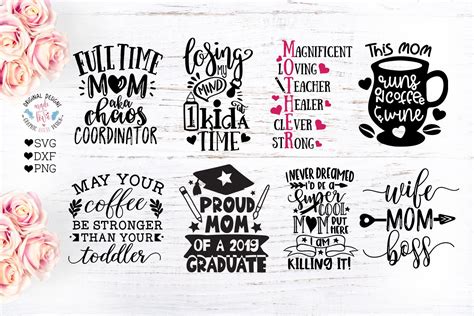 FULL TIME
MOM
aka
chaos
COORDINATOR
losing
MY
MIND
1 kid a
TIME
MAGNIFICENT
LOVING
TEACHER
HEALER
CLEVER
STRONG
MOTHER
This MOM
runs
on coffee
& wine
ORIGINAL DESIGNS
SVG
DXF
PNG
MAY YOUR
coffee
BE STRONGER
THAN YOUR
toddler
PROUD
MOM
OF A 2019
GRADUATE
I NEVER DREAMED
I'D be A
super
COOL
MOM BUT
HERE
I AM
KILLING IT!
wife
MOM
boss